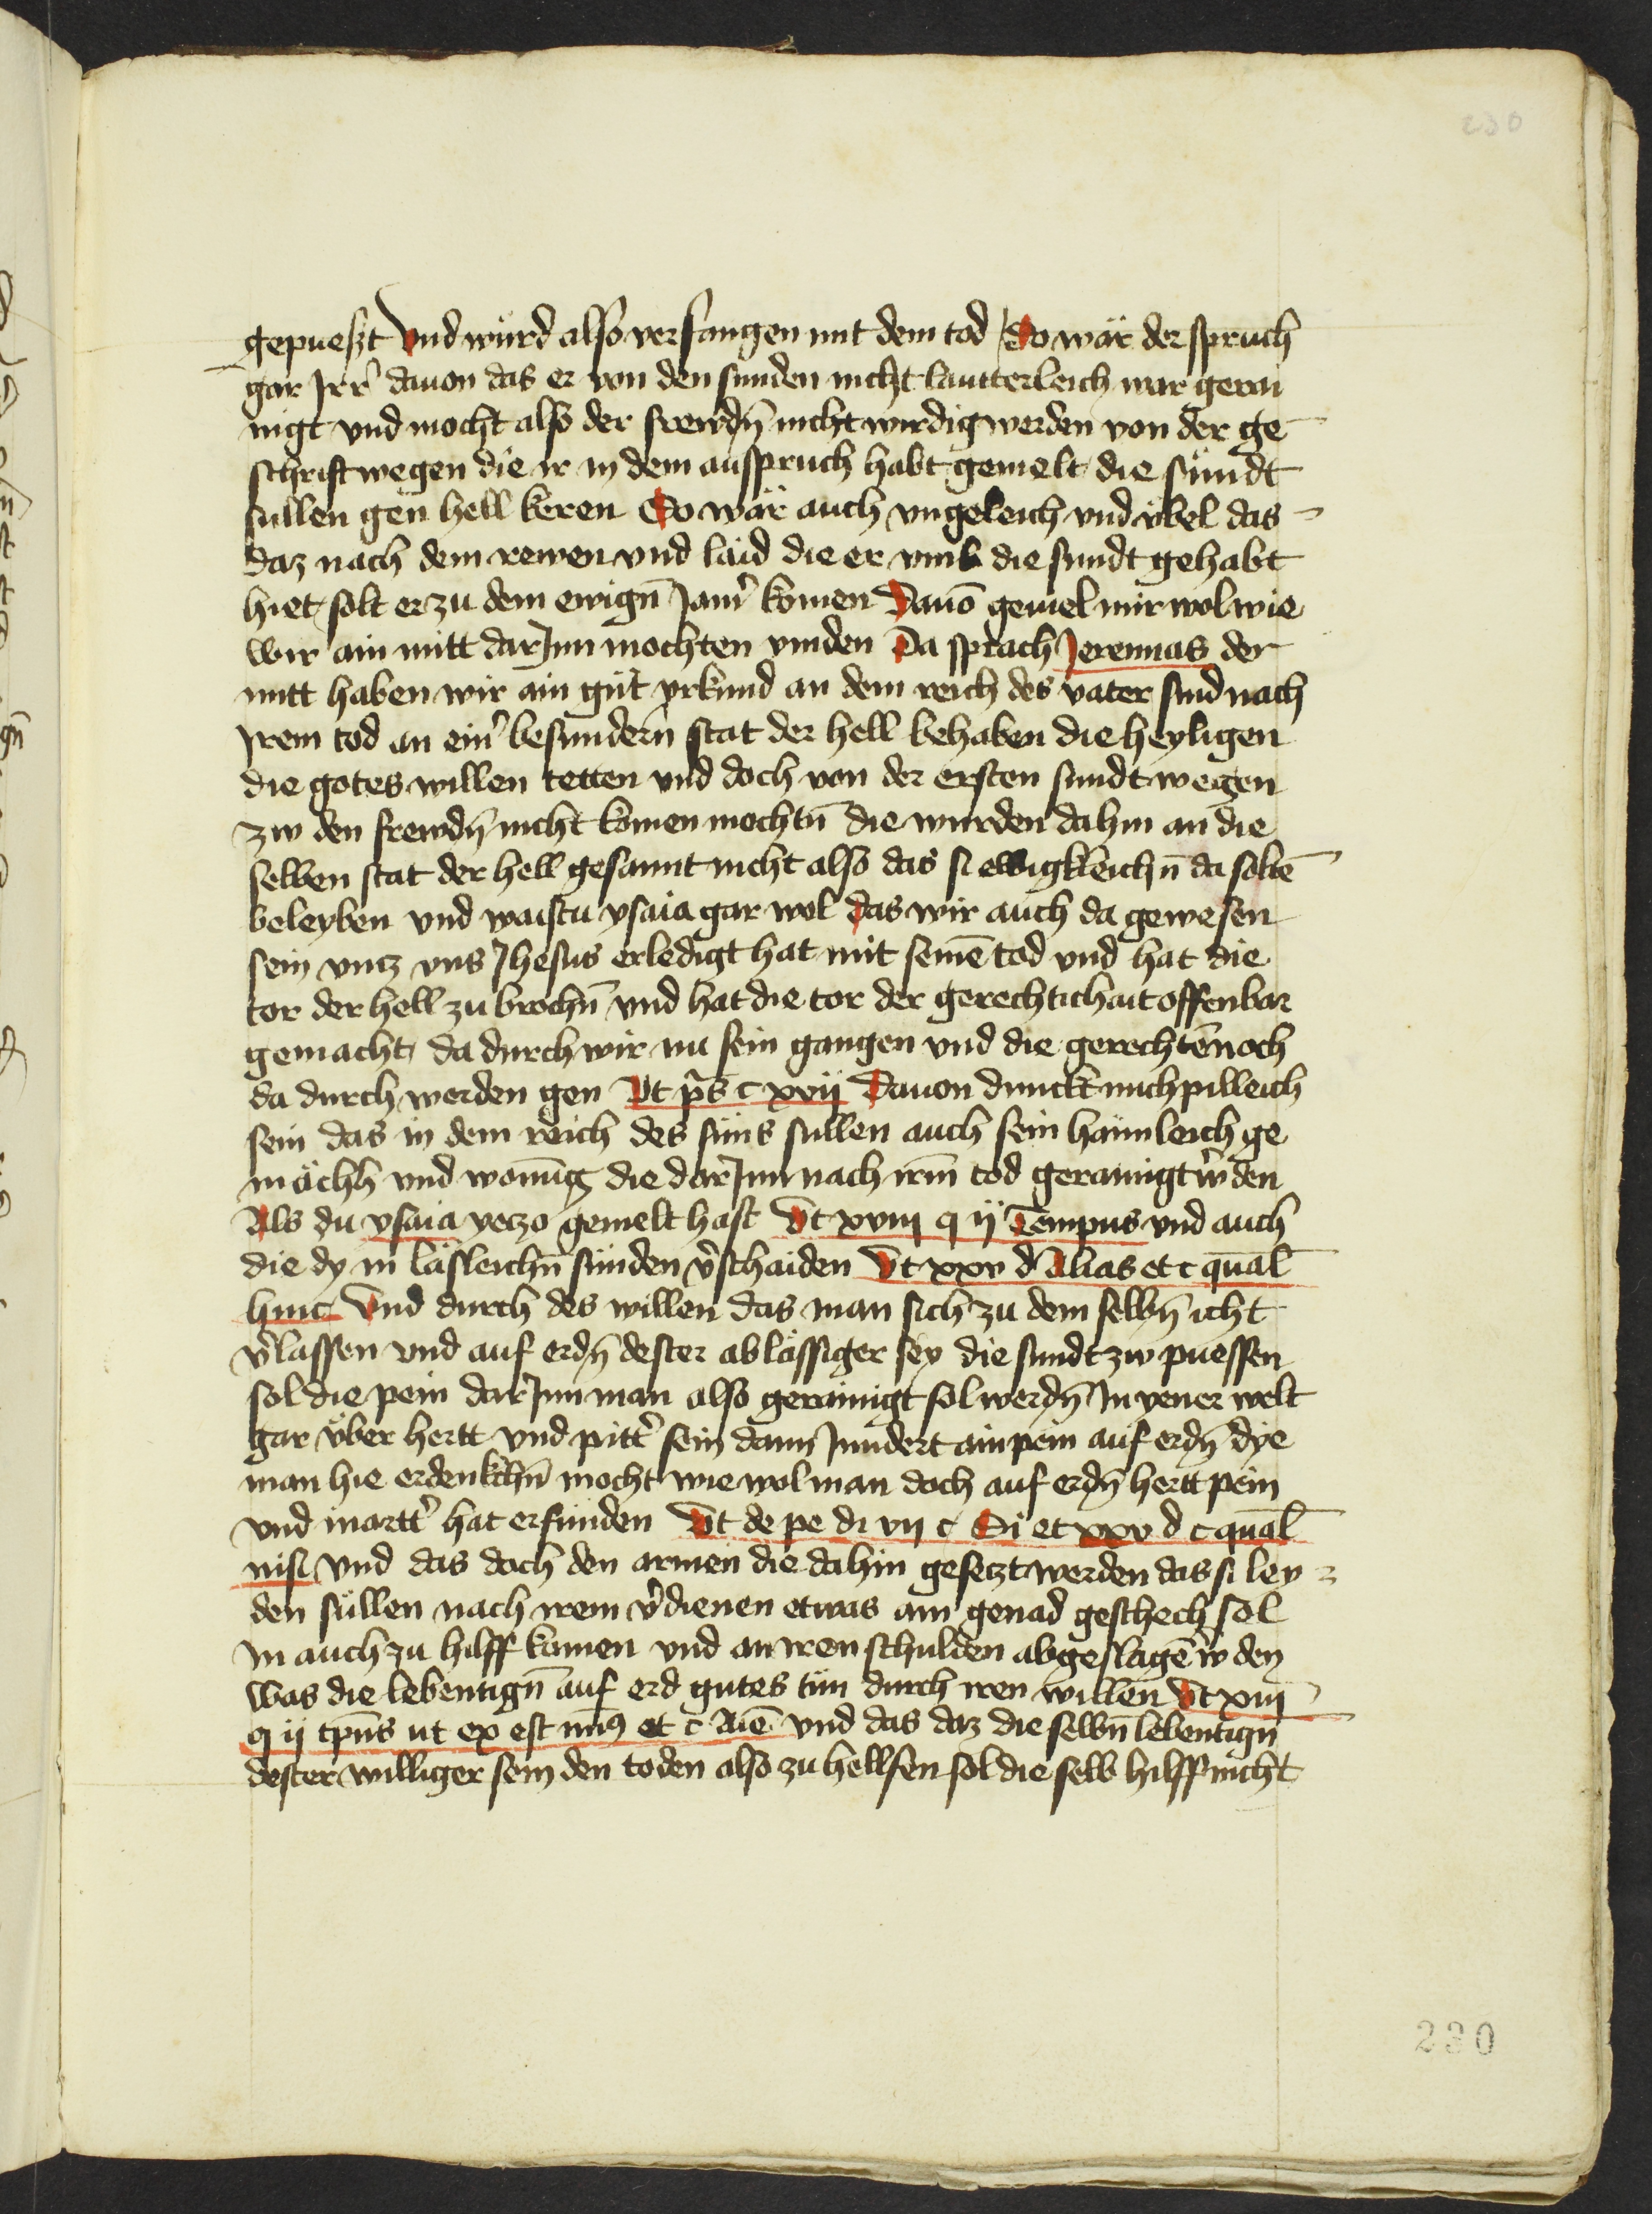 230
gepueszt Vnd würd also verfangen mit dem tod So wär der spruch
gar Jrr̉ dauon das er von den sunden nicht lautterleich war gerai
nigt vnd mocht also der frewdn̄ nicht wirdig werden von der ge
schrift wegen die ir in dem ausspruch habt gemelt die sündt
süllen gen hell keren So wär auch vngeleich vnd v̈bel das
daz nach dem rewen vnd laid die er vmb die sundt gehabt
hiet solt er zu dem ewign̄ Jam̉ komen Dauō geuiel mir wol wie
wir ain mitt darJnn mochten vinden Da sprach Jeremias der
mitt haben wir ain güt vrkund an dem reich des vater sind nach
Jrem tod an ein̉ besundern̄ stat der hell behaben die heyligen
die gotes willen tetten vnd doch von der ersten sundt wegen
zw den frewdn̄ nicht komen mochtn̄ die wurden dahin an die
selben stat der hell gesannt nicht also das si ewigkleichn̄ da soltē
beleyben vnd waistu ysaia gar wol das wir auch da gewesen
sein vncz vns Jhesus erledigt hat mit seinē tod vnd hat die
tor der hell zu brochn̄ vnd hat die tor der gerechtichait offenbar
gemacht da durch wir nu sein gangen vnd die gerechtē noch
da durch werden gen Vt ps̄ c xvij Dauon dunckt mich pilleich
sein das in dem reich des süns sullen auch sein haimleich ge
mächh vnd wonūg die darJnn nach irm̄ tod gerainigt w̉den
Als du ysaia yeczo gemelt hast Vt xviij q ij Tempus vnd auch
die dy in läsleichn̄ sünden v̉schaiden Vt xxv d̄ Alias et c qual̄
hinc Vnd durch des willen das man sich zu dem selbn̄ icht
v̉lassen vnd auf erdn̄ dester ablässiger sey die sundt zw puessen
sol die pein darJnn man also gerainigt sol werdn̄ Jn yener welt
gar v̈ber hertt vnd pitt̉ sein dann Jnndert ain pein auf erdn̄ dye
man hie erdenkchn̄ mocht wie wol man doch auf erdn̄ hertt pein
vnd martt̉ hat erfunden Vt de pe di vij c Si et xxv d c qual̄
nisi vnd das doch den armen die dahin geseczt werden das si ley
den süllen nach irem v̉dienen etwas ain genad geschech sol
in auch zu hilff komen vnd an iren schulden abgeslagē w̉den
was die lebentign̄ auf erd gutes tün durch iren willen Vt xiij
q ij tp̄us ut ex est mīs et c Aīe vnd das daz die selbn̄ lebentign̄
dester williger sein den toden also zu hellfen sol die selb hilff nicht
230